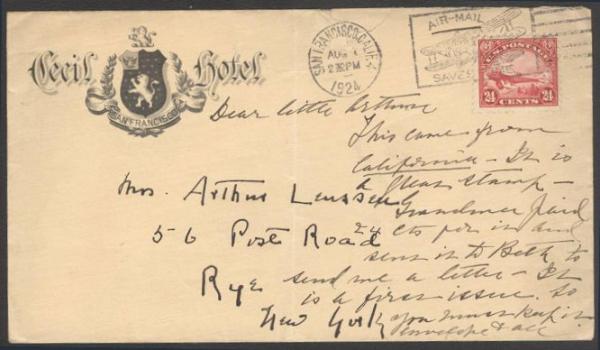 Cecil Hotel
SAN FRANCISCO
SAN FRANCISCO, CALIF.
AUG
2 PM
1924
AIR-MAIL
SAVES
U.S. POSTAGE
24 24
CENTS
Dear little Arthur
This came from
California - It is
a Year Stamp -
Grandma paid
24 cts for it and
sent it to Beth to
send me a letter - It
is a first issue. So
you must keep it
envelope & all
Mrs. Arthur
56 Post Road
Rye
New York